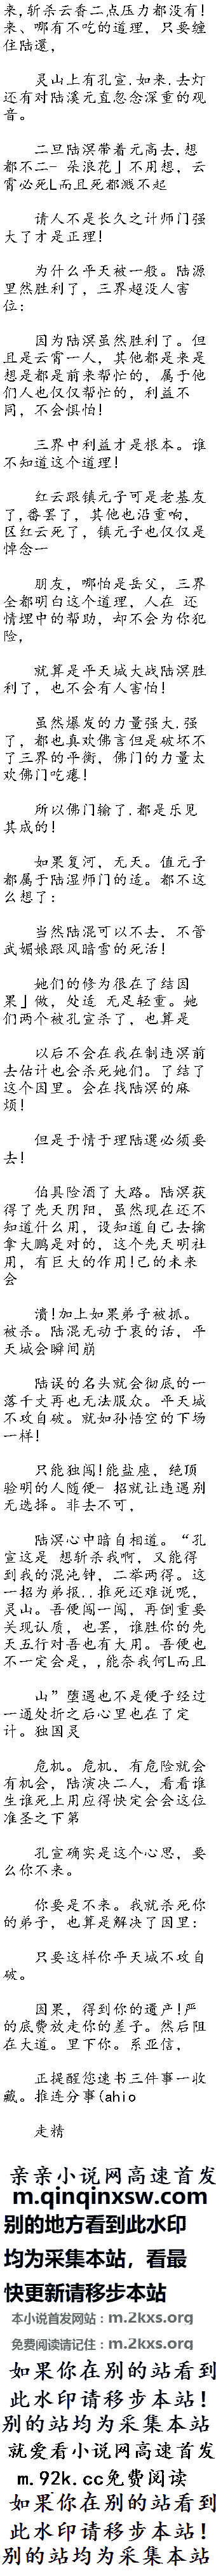 来,斩杀云香二点压力都没有!
来、哪有不吃的道理，只要缠
住陆還，
灵山上有孔宣.如来.去灯
还有对陆溪元直忽念深重的观
音。
二旦陆溟带着元高去.想
都不二-朵浪花」不用想，云
霄必死L而且死都溅不起
请人不是长久之计师门强
大了才是正理!
为什么平天被一般。陆源
里然胜利了，三界超没人害
位:
因为陆溟虽然胜利了。但
且是云霄一人，其他都是来是
想是都是前来帮忙的，属于他
们人也仅仅帮忙的，利益不
同，不会惧怕!
三界中利益才是根本。谁
不知道这个道理!
红云跟镇元子可是老基友
了,番罢了，其他也沿重响，
区红云死了，镇元子也仅仅是
悼念一
朋友，哪怕是岳父，三界
全都明白这个道理，人在 还
情埋中的帮助，却不会为你犯
险，
就算是平天城大战陆溟胜
利了，也不会有人害怕!
虽然爆发的力量强大.强
了，都也真欢佛言但是破坏不
了三界的平衡，佛门的力量太
欢佛门吃瘪!
所以佛门输了.都是乐见
其成的!
如果复河，无天。值元子
都属于陆湿师门的适。都不这
么想了:
当然陆混可以不去，不管
武媚娘跟风暗雪的死活!
她们的修为很在了结因
果」做，处适 无足轻重。她
们两个被孔宣杀了，也算是
以后不会在我在制违溟前
去估计也会杀死她们。了结了
这个因里。会在找陆溟的麻
烦!
但是于情于理陆遷必须要
去!
伯具险酒了大路。陆溟获
得了先天阴阳，虽然现在还不
知道什么用，设知道自己去擒
拿大鹏是对的，这个先天明社
用，有巨大的作用!己的未来
会
溃!加上如果弟子被抓。
被杀。陆混无动于衷的话，平
天城会瞬间崩
陆误的名头就会彻底的一
落千丈再也无法服众。平天城
不攻自破。就如孙悟空的下场
一样!
只能独闯!能盐座，绝顶
验明的人随便-招就让违遇别
无选择。非去不可，
陆溟心中暗自相道。“孔
宣这是 想斩杀我啊，又能得
到我的混沌钟，二举两得。这
一招为弟报..推死还难说呢，
灵山。吾便闯一闯，再倒重要
关现认质，也罢，谁胜你的先
天五行对吾也有大用。吾便也
不一定会是，,能奈我何L而且
山”堕遇也不是便子经过
一通处折之后心里也在了定
计。独国灵
危机。危机，有危险就会
有机会，陆演决二人，看看谁
生谁死上用应得快定会会这位
准圣之下第
孔宣确实是这个心思，要
么你不来。
你要是不来。我就杀死你
的弟子，也算是解决了因里:
只要这样你平天城不攻自
破。
因果，得到你的遭产!严
的底费放走你的差子。然后阻
在大道。里下你。系亚信，
正提醒您速书三件事一收
藏。推连分事(ahio
走精
亲亲小说网高速首发
m.qinqinxsw.com
别的地方看到此水印
均为采集本站，看最
快更新请移步本站
本小说首发网站：m.2kxs.org
免费阅读请记住：m.2kxs.org
如果你在别的站看到
此水印请移步本站！
别的站均为采集本站
就爱看小说网高速首发
m.92k.cc免费阅读
如果你在别的站看到
此水印请移步本站！
别的站均为采集本站